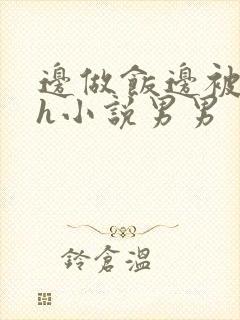 邊做飯邊被
h小說男男
鈴倉溫